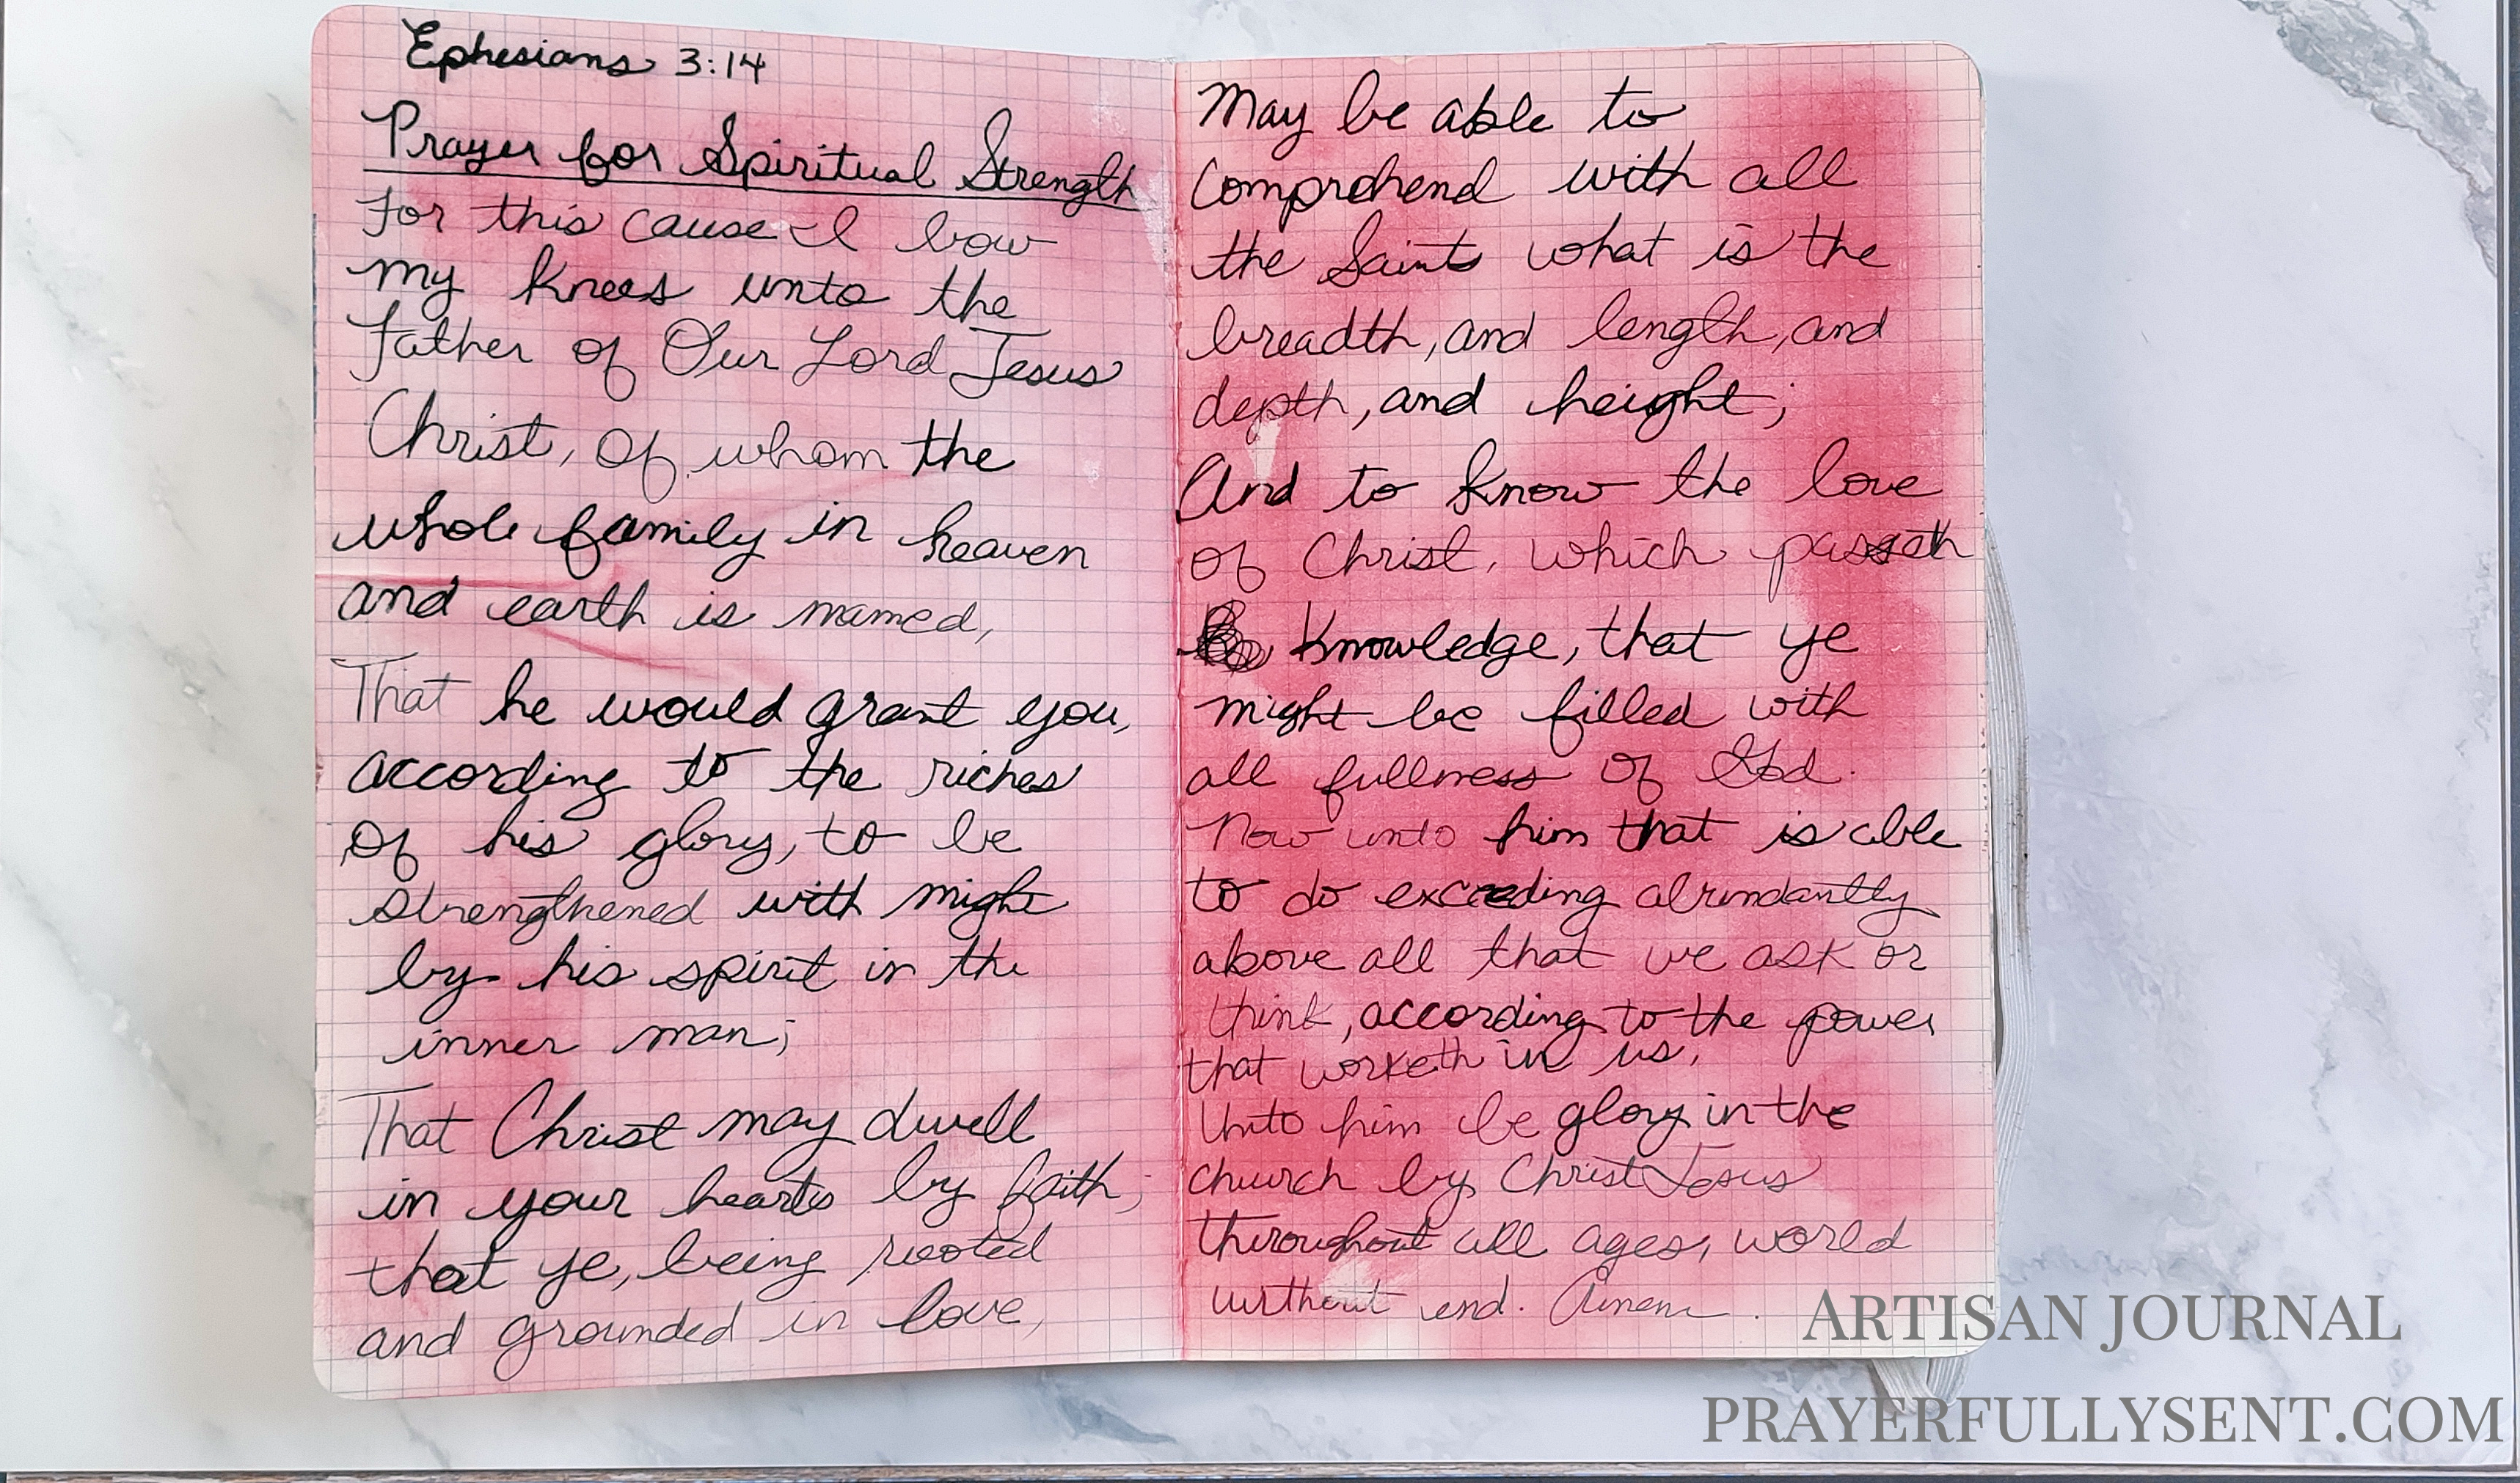 Ephesians 3:14
Prayer for Spiritual Strength
For this cause I bow
my knees unto the
Father of Our Lord Jesus
Christ, Of whom the
whole family in heaven
and earth is named,
That he would grant you,
according to the riches
Of his glory, to be
strengthened with might
by his spirit in the
inner man;
That Christ may dwell
in your hearts by faith;
that ye, being rooted
and grounded in love,
May be able to
Comprehend with all
the Saints what is the
breadth, and length, and
depth, and height;
And to know the love
of Christ, which passeth
Knowledge, that ye
might be filled with
all fullness of God.
Now unto him that is able
to do exceeding abundantly
above all that we ask or
think, according to the power
that worketh in us,
Unto him be glory in the
church by Christ Jesus
throughout all ages, world
without end. Amen.
ARTISAN JOURNAL
PRAYERFULLYSENT.COM